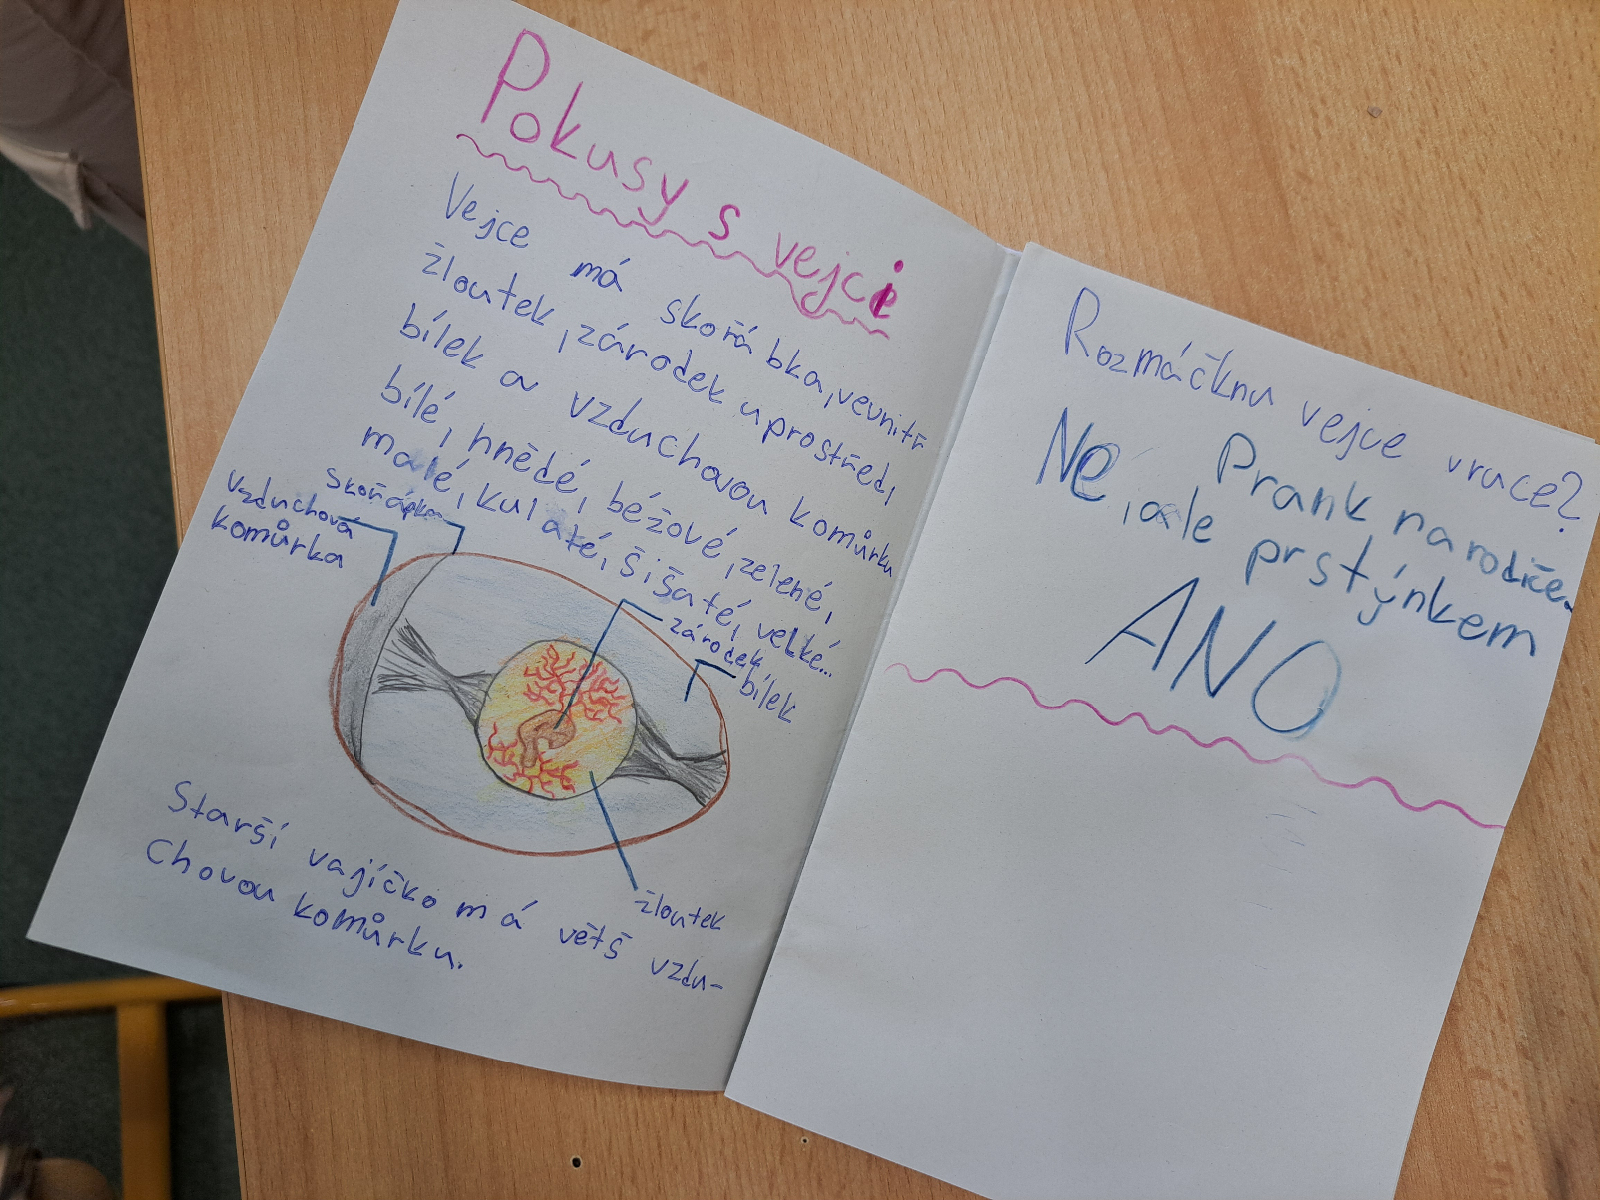 Pokusy s vejci
Vejce má skořábka, vevnitř
žloutek, zárodek uprostřed,
bílek a vzduchovou komůrku
bílé, hnědé, béžové, zelené,
malé, kulaté, šišaté, velké...
Skořápka
Vzduchová
komůrka
zárodek
bílek
žloutek
Starší vajíčko má větš vzdu-
chovou komůrku.
Rozmáčknu vejce vruce?
Ne, ale Prank na rodiče
prstýnkem
ANO